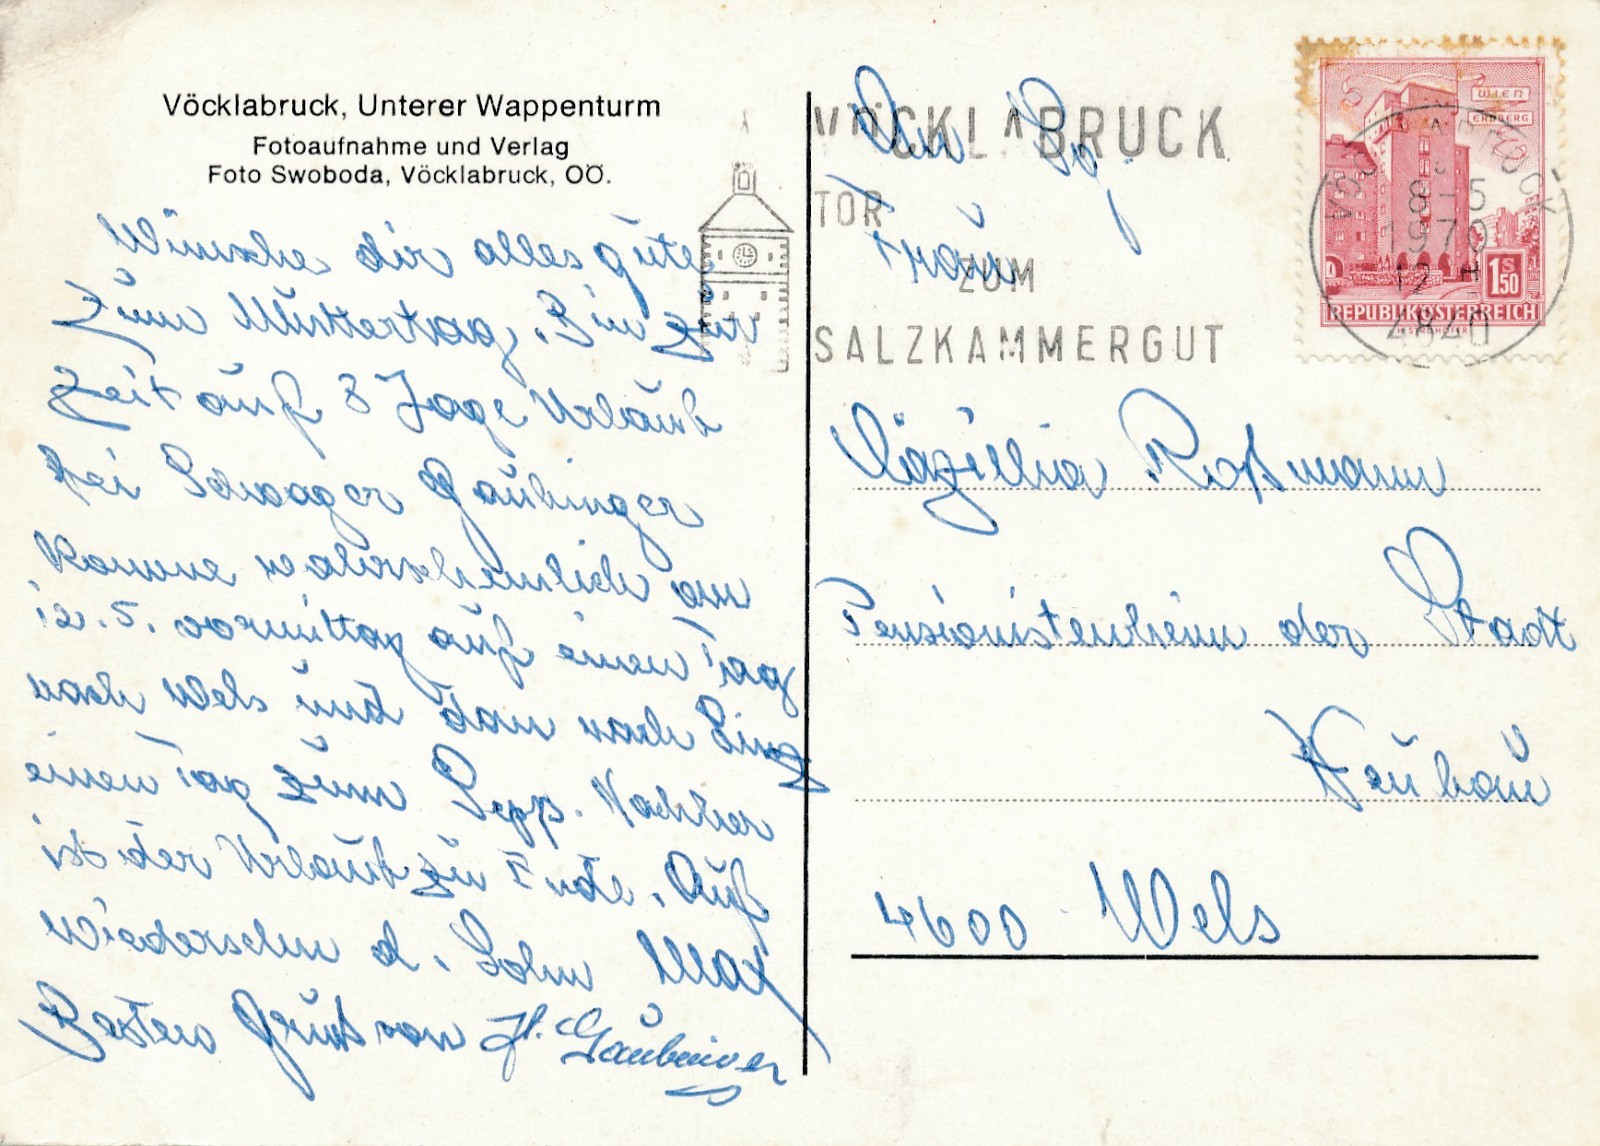 Vöcklabruck, Unterer Wappenturm
Fotoaufnahme und Verlag
Foto Swoboda, Vöcklabruck, OÖ.
Wünsche dir alles gute
zum Muttertag. Bin zur
Zeit auf 3 Tage Urlaub
bei Schwager Gaubinger
Komme warscheinlich am
12.5. vormittag auf einen Tag
nach Wels und dan nach Linz
einen Tag zum Sepp. Nachher
ist der Urlaub zu Ende. Auf
wiedersehn d. Sohn Max
Besten Gruß von
VÖCKLABRUCK
TOR
ZUM
SALZKAMMERGUT
WIEN
ERDBERG
8-5
1970
12
4840
S
150
REPUBLIK ÖSTERREICH
An
Frau
Cäzillia Roßmann
Pensionistenheim der Stadt
Neubau
4600 Wels